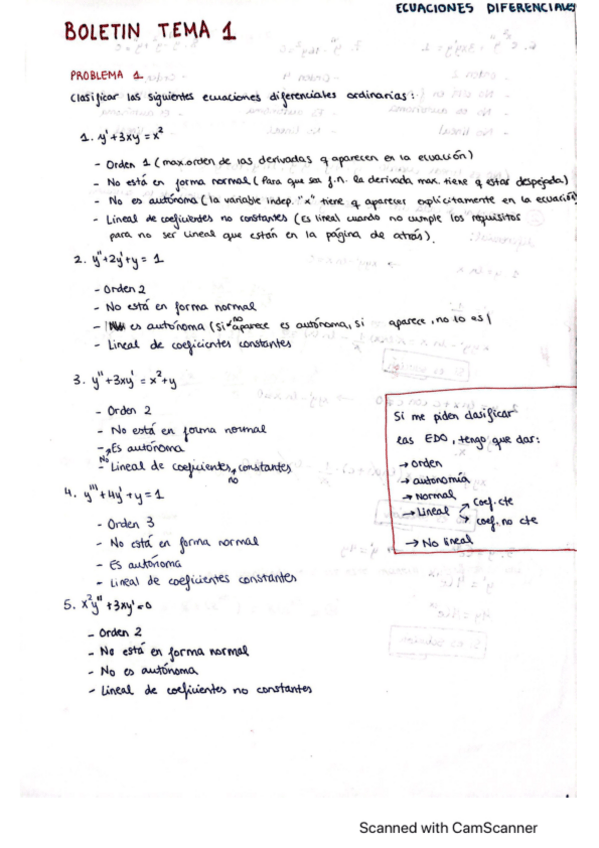 ECUACIONES DIFERENCIALES
BOLETIN TEMA 1
PROBLEMA 1
Clasificar las siguientes ecuaciones diferenciales ordinarias:
1. y'+3xy = x²
- Orden 1 (max.orden de las derivadas q aparecen en la ecuación)
- No está en forma normal (Para que sea f.n. la derivada max. tiene q estar despejada)
- No es autónoma (la variable indep. "x" tiene q aparecer explícitamente en la ecuación)
- Lineal de coeficientes no constantes (Es lineal cuando no cumple los requisitos
para no ser lineal que están en la página de atrás).
2. y''+2y'+y = 1
- Orden 2
- No está en forma normal
- es autónoma (Si no aparece es autónoma, si aparece, no lo es)
- Lineal de coeficientes constantes
3. y''+3xy' = x²+y
- Orden 2
- No está en forma normal
- No Es autónoma
- Lineal de coeficientes no constantes
Si me piden clasificar
las EDO, tengo que dar:
→ orden
→ autonomía
→ Normal
→ Lineal → coef. cte
→ coef. no cte
→ No lineal
4. y'''+4y'+y = 1
- Orden 3
- No está en forma normal
- Es autónoma
- Lineal de coeficientes constantes
5. x²y''+3xy' = 0
- Orden 2
- No está en forma normal
- No es autónoma
- Lineal de coeficientes no constantes
Scanned with CamScanner